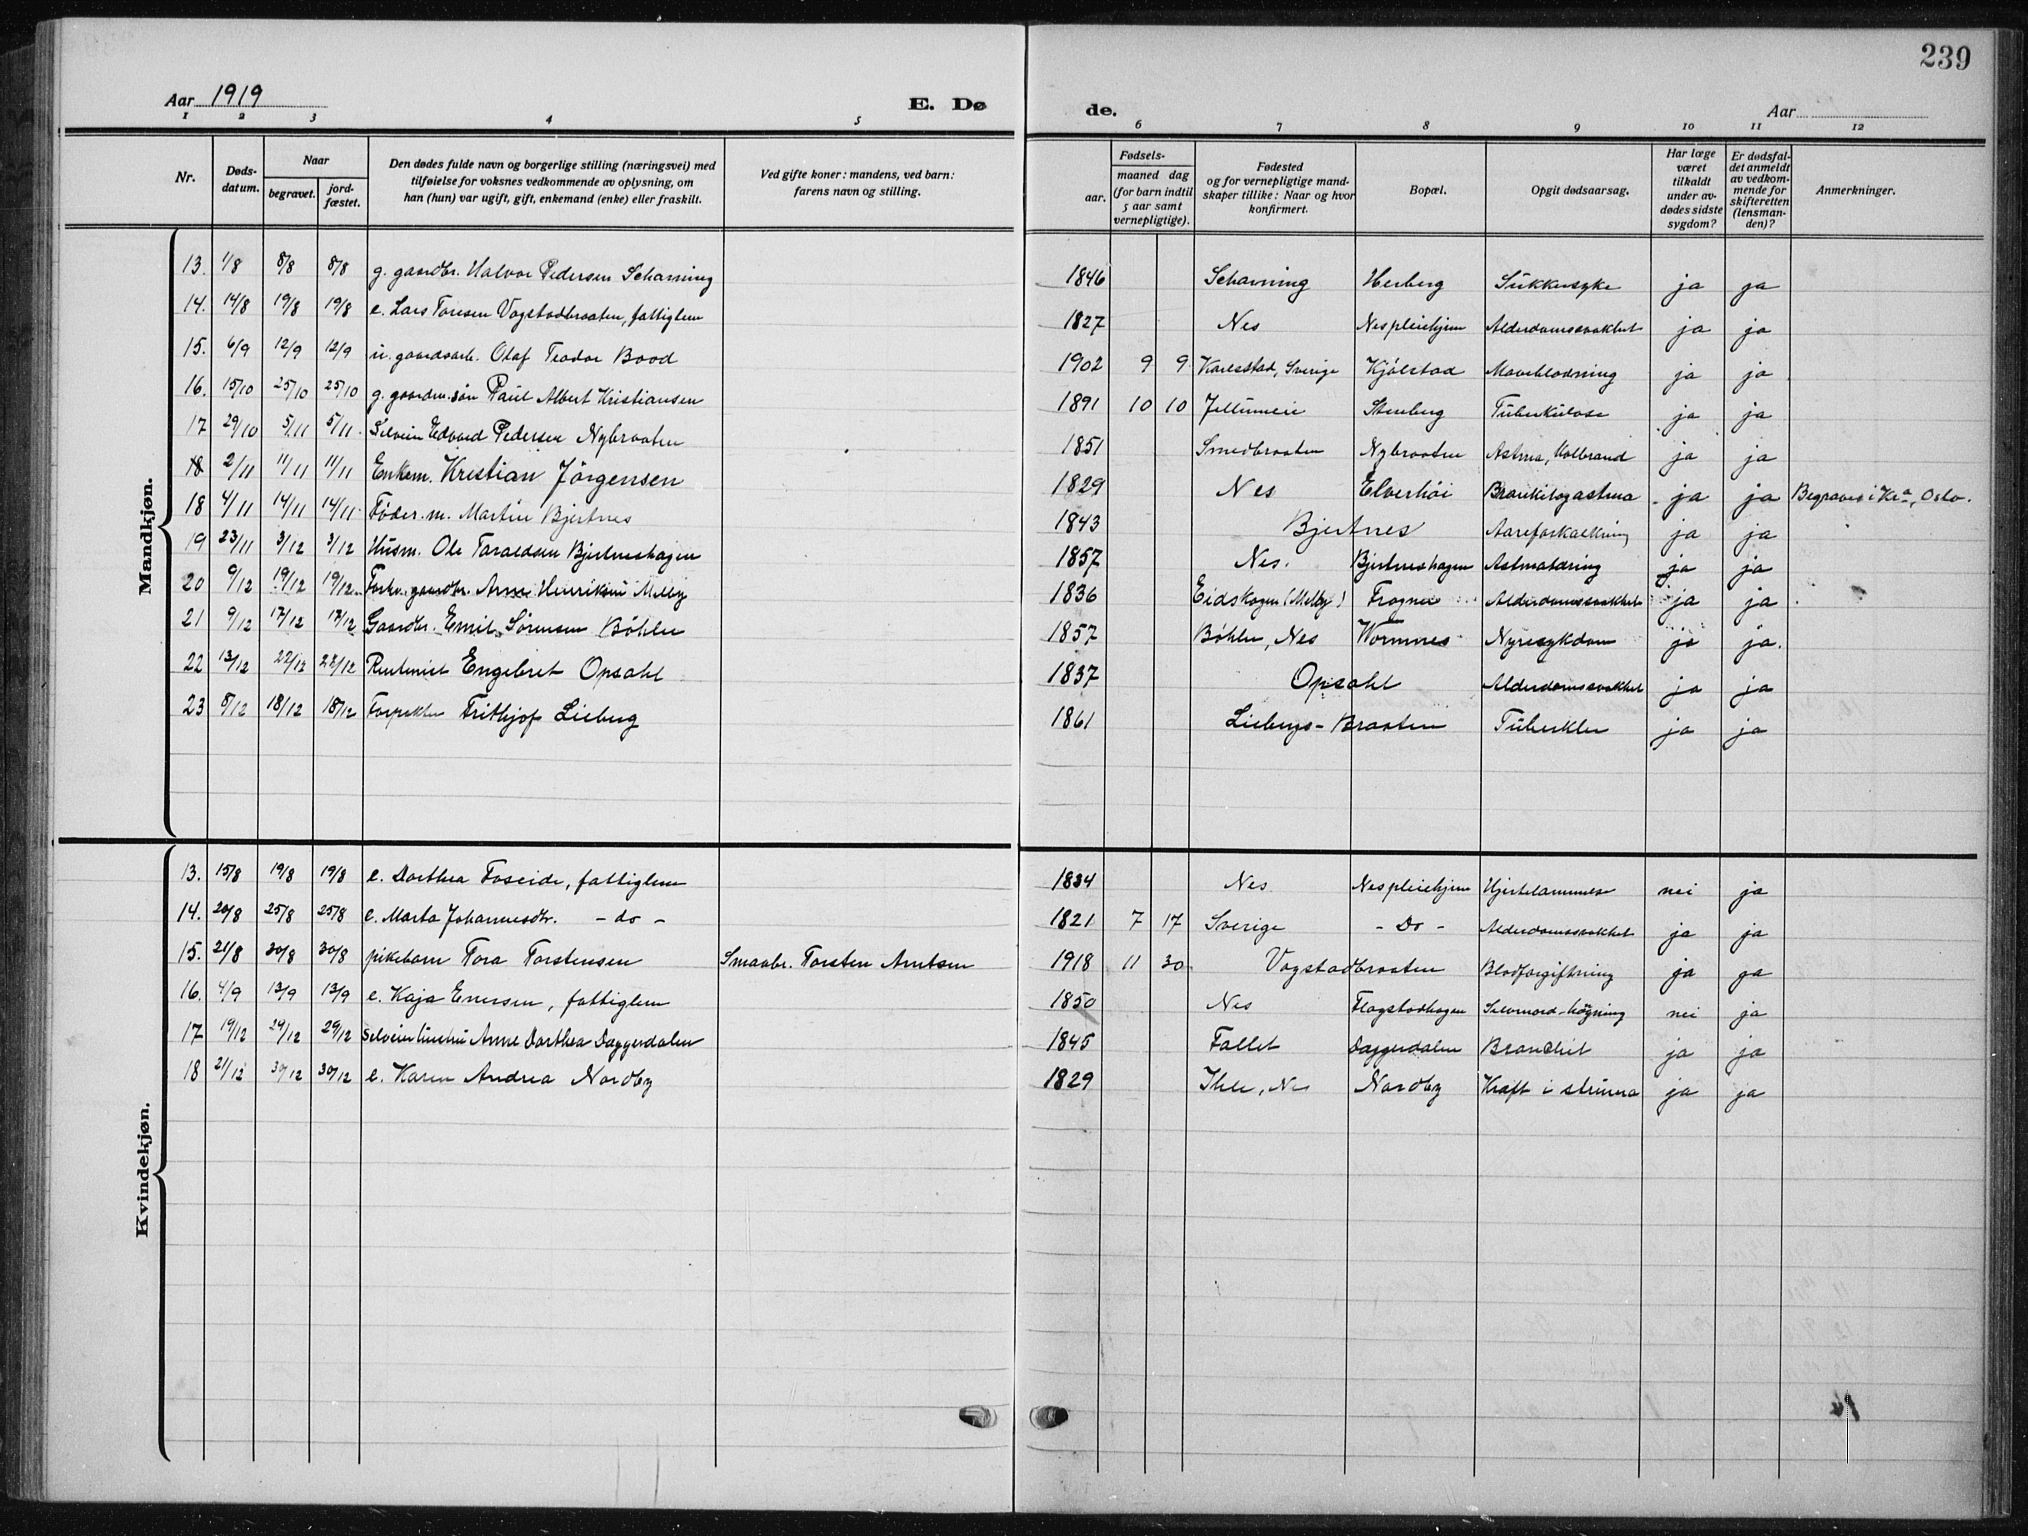 239
Aar 1919 E. Dø de. Aar
1 2 3 4 5 6 7 8 9 10 11 12
Nr. Døds-datum. Naar begravet. jord-fæstet. Den dødes fulde navn og borgerlige stilling (næringsvei) med tilføielse for voksnes vedkommende av oplysning, om han (hun) var ugift, gift, enkemand (enke) eller fraskilt. Ved gifte koner: mandens, ved barn: farens navn og stilling. Fødsels- aar. maaned dag (for barn indtil 5 aar samt vernepligtige). Fødested og for vernepligtige mand-skaper tillike: Naar og hvor konfirmert. Bopæl. Opgit dødsaarsag. Har læge været tilkaldt under av-dødes sidste sygdom? Er dødsfal-det anmeldt av vedkom-mende for skifteretten (lensman-den)? Anmerkninger.
Mandkjøn.
13. 1/8 8/8 8/8 g. gaardbr. Halvor Pedersen Scharning 1846 Scharning Herberg Sukkersyke ja ja
14. 14/8 19/8 19/8 e. Lars Toresen Vogstadbraaten, fattiglem 1827 Nes Nes pleiehjem Alderdomssvakhet ja ja
15. 6/9 12/9 12/9 u. gaardsarb. Olaf Teodor Bood 1902 9 9 Karlsstad, Sverige Kjølstad Maveblødning ja ja
16. 15/10 25/10 25/10 g. gaardm. søn Paul Albert Kristiansen 1891 10 10 Stenberg Tuberkulose ja ja
17 29/10 5/11 5/11 Selveier Edvard Pedersen Nybraaten 1851 Smedbraaten Nybraaten Astma, Kolbrand ja ja
18 2/11 11/11 11/11 Enkem. Kristian Jørgensen 1829 Nes Elverhøi Bronkit og astma ja ja Begravet i Kra, Oslo.
18 4/11 14/11 14/11 Føder. m. Martin Bjertnes 1843 Bjertnes Aareforkalkning ja ja
19 23/11 3/12 3/12 Husm. Ole Taraldsen Bjertneshagen 1857 Nes. Bjertneshagen Astmatæring ja ja
20 9/12 19/12 19/12 Forhv. gaardbr. Arne Henriksen Melby 1836 Eidskogen (Melby) Frogner Alderdomssvakhet ja ja
21 9/12 17/12 17/12 Gaardbr. Emil Sørensen Bøhler 1857 Bøhler, Nes Wormnes Nyresykdom ja ja.
22 13/12 22/12 22/12 Rentenist Engebret Opsahl 1837 Opsahl Alderdomssvakhet ja ja
23 8/12 18/12 18/12 Forpakter Frithjof Lieberg 1861 Liebergs-Braaten Tuberkler ja ja
Kvindekjøn.
13. 15/8 19/8 19/8 e. Dorthea Foseide, fattiglem 1834 Nes Nes pleiehjem Hjertelammese nei ja
14. 20/8 25/8 25/8 e. Marta Johannesdtr. - do - 1821 7 17 Sverige - Do - Alderdomssvakhet ja ja
15. 21/8 30/8 30/8 pikebarn Tora Torstensen Smaabr. Torsten Arntsen 1918 11 30 Vogstadbraaten Blodforgiftning ja ja
16. 4/9 13/9 13/9 e. Kaja Enersen, fattiglem 1850 Nes Flagstadhagen Selvmord-hægning nei ja
17 19/12 29/12 29/12 Selveier Anne Dorthea Daggerdalen 1845 Fallet Daggerdalen Bronchit ja ja
18 21/12 30/12 30/12 e. Karen Andrea Nordby 1829 Ihle, Nes Nordby Kraft i strima ja ja